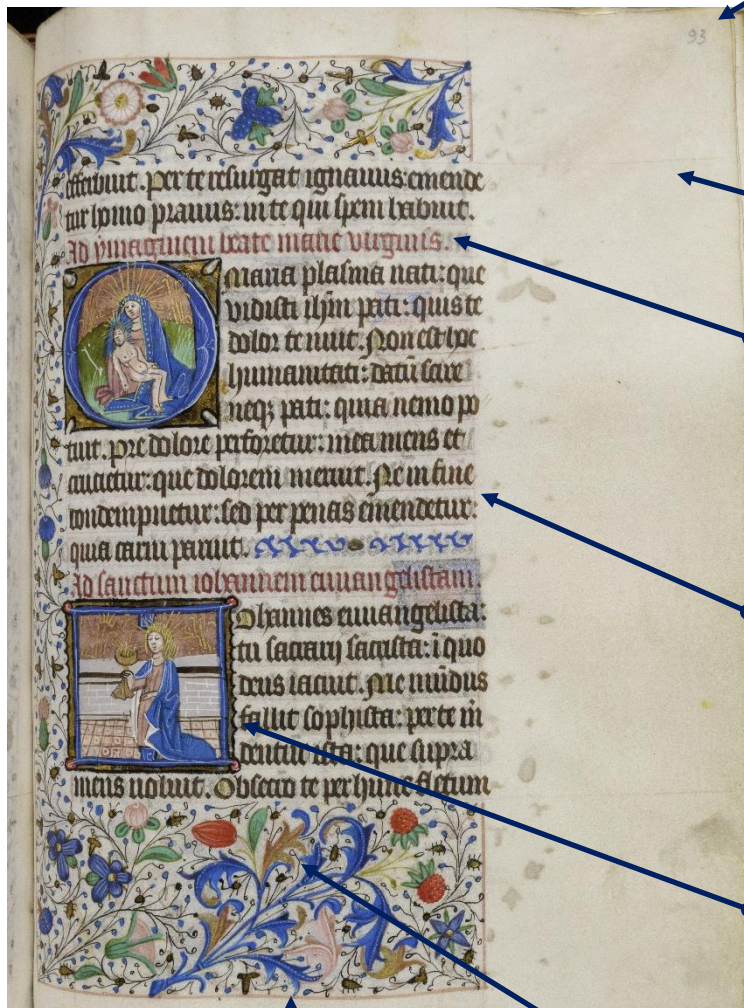 93
effebuit. per te resurgat ignauus: emende
tur homo prauus: in te qui spem habuit.
Ad ymaginem beate marie virginis.
O Maria plasma nati: que
vidisti ihm pati: quis te
dolor tenuit. Non est hoc
humanitati: datu scire
neq; pati: quia nemo po
tuit. pre dolore perforetur: mea mens et
crucietur: que dolorem meruit. Ne in fine
condempnetur: sed per penas emendetur:
quia caru paruit.
Ad sanctum iohannem euuangelistam.
Iohannes euuangelista:
tu sacrarij sacrista: i quo
deus iacuit. Me mudus
fallit sophista: per te
ista: que supra
mens uoluit. Obsecro te per hunc fletum